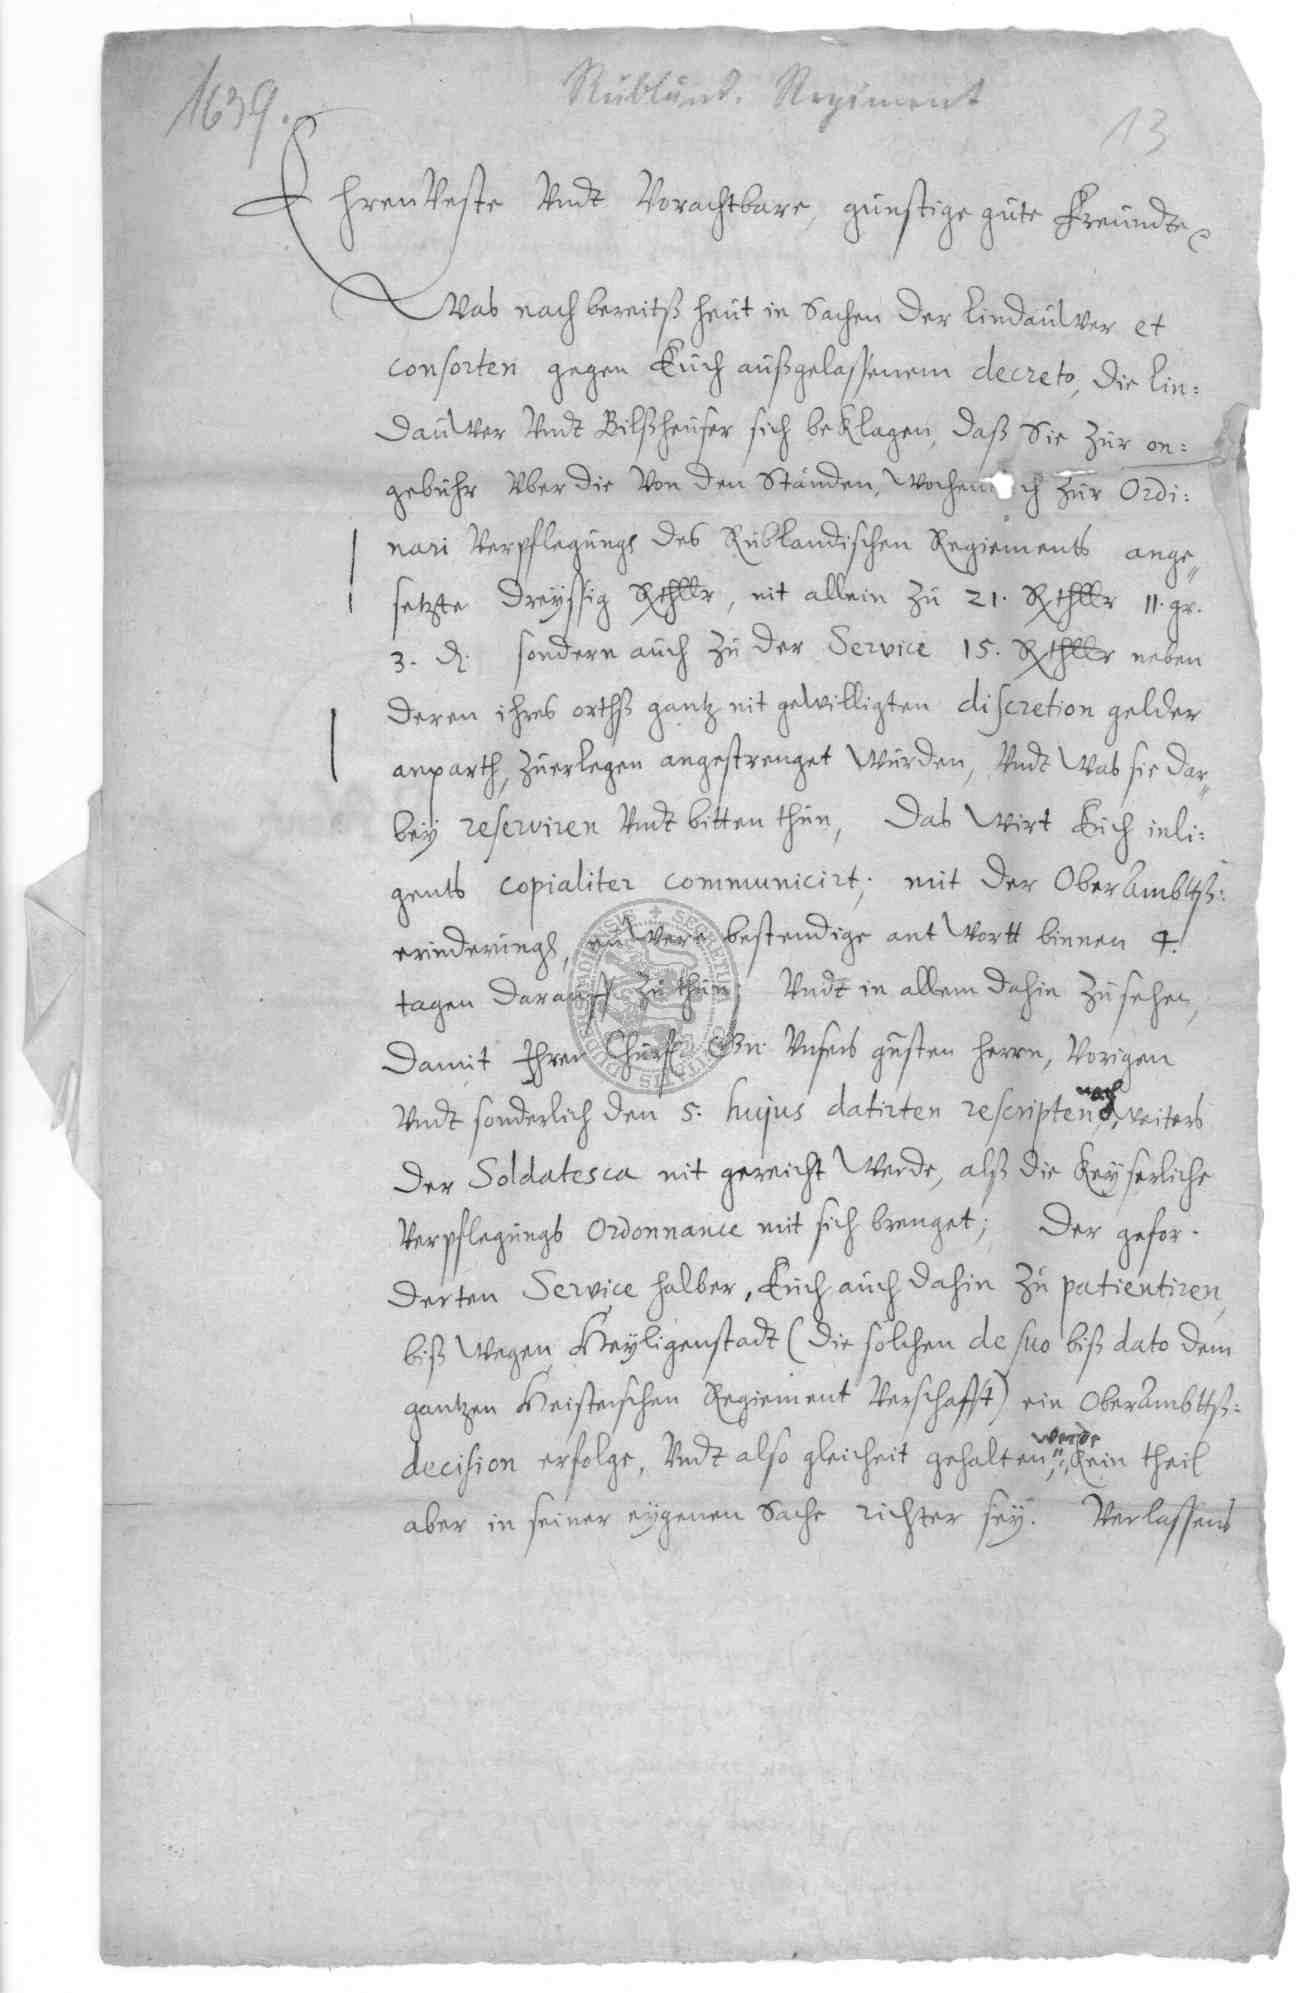 1639.
Rübländ. Regiment
13
EhrenVeste Vndt Vorachtbare, günstige güte Freündte
Was nach bereitß heüt in Sachen der Lindaüwer et
consorten gegen Eüch aüßgelassenem decreto, die Lin:
daüwer Vndt Bilßheüser sich beklagen, daß Sie zür on:
gebühr Vber die Von den Ständen, Wochen ch zür Ordi:
nari Verpflegüngh des Rüblandischen Regiements ange„
setzte dreyssig Rthllr, nit allein zü 21. Rthllr 11. gr.
3. d. sondern aüch zü der Service 15. Rthllr neben
deren ihres orthß gantz nit gewilligten discretion gelder
anparth, züerlegen angestrenget würden, Vndt Was sie dar„
bey reserviren Vndt bitten thün, Das Wirt Eüch inli:
gents copialiter communicirt; mit der OberAmbttß:
erinderüngh, bestendige antwortt binnen 4.
tagen daraüff zü thün, Vndt in allem dahin zü sehen,
damit Ihrer Churf. Gn. Vnsers gnsten herrn, Vorigen
Vndt sonderlich den 5: hujus datirten rescripten nach, weiters
der Soldatesca nit gereicht Werde, alß die Keyserliche
Verpflegüngs Ordonnance mit sich brenget; Der gefor:
derten Service halber, Eüch aüch dahin zü patientiren,
biß Wegen Heyligenstadt (die solchen de suo biß dato dem
gantzen Heisterschen Regiement Verschafft) ein OberAmbttß:
decision erfolge, Vndt also gleicheit gehalten werde, Kein theil
aber in seiner eygenen Sache richter sey. Verlassens